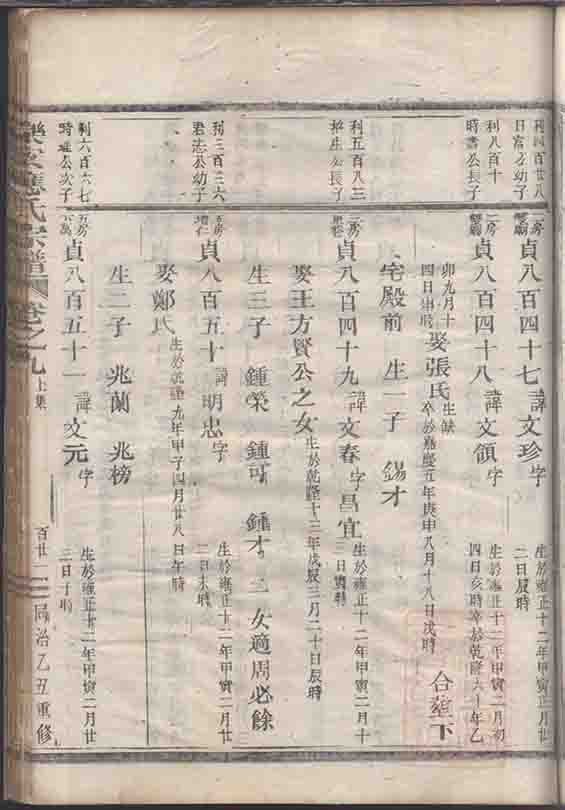 利四百廿八
日富公幼子
二房
貞八百四十七 諱文珍 字
生於雍正十二年甲寅二月廿
二日辰時
利八百十
時書公長子
二房
貞八百四十八 諱文領 字
生於雍正十二年甲寅二月初
四日亥時卒於乾隆六十年乙
卯九月十
四日申時
娶張氏
生缺
卒於嘉慶五年庚申八月十八日戌時
合塟下
宅殿前 生一子 錫才
利五百八三
招生公長子
二房
貞八百四十九 諱文春 字昌宜
生於雍正十二年甲寅二月十
日寅時
娶王方賢公之女
生於乾隆十三年戊辰三月二十日辰時
生三子 鍾榮 鍾哥 鍾才 三女適周必餘
利三百三六
君志公幼子
五房
貞八百五十 諱明忠 字
生於雍正十二年甲寅二月廿
二日未時
娶鄭氏
生於乾隆九年甲子四月廿八日午時
生二子 兆蘭 兆榜
利六百六七
時雄公次子
五房
貞八百五十一 諱文元 字
生於雍正十二年甲寅二月廿
三日子時
應氏宗譜 卷之九 上集 百廿二 同治乙丑重修